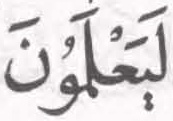 لَيَعْلَمُوْنَ